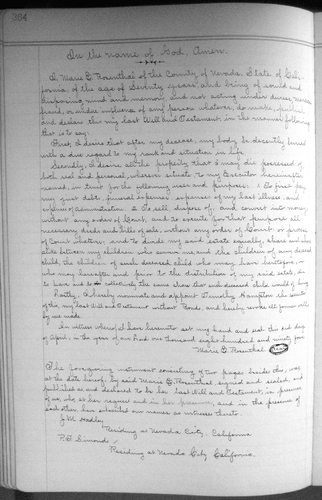 364
In the name of God, Amen.
I Marie E. Rosenthal of the County of Nevada, State of Cali-
fornia, of the age of Seventy years and being of sound and
disposing mind and memory, and not acting under duress, menace,
fraud, or undue influence of any person whatever, do make, publish
and declare this my last Will and Testament, in the manner following
that is to say:
First, I desire that after my decease, my body be decently buried
with a due regard to my rank and situation in life.
Secondly, I desire all the property that I may die possessed of
both real and personal, wherever situate to my Executor hereinafter
named, in trust for the following uses and purposes: 1. To first pay
my just debts, funeral expenses, expenses of my last illness, and
expenses of Administration. 2. To sell, dispose of, and convert into money,
without any order of Court, and to execute for that purpose all
necessary deeds and bills of sale, without any order of Court or process
of Court whatever; and to divide my said estate equally, share and share
alike between my children who survive me and the children of any deceased
child, the children of such deceased child who may have heretofore, or
who may hereafter and prior to the distribution of my said estate, die
to have and to collectively the same share that such deceased child would if living
Lastly, I hereby nominate and appoint Timothy Hampton the executor
of this, my last Will and Testament without Bonds, and hereby revoke all former wills
by me made.
In witness whereof, I have hereunto set my hand and seal this 3rd day
of April, in the year of our Lord one thousand eight hundred and ninety four
Marie E. Rosenthal
The foregoing instrument consisting of two pages besides this, was
at the date hereof, by said Marie E. Rosenthal, signed and sealed, and
published as, and declared to be her last Will and Testament, in presence
of us, who, at her request and in her presence, and in the presence of
each other, have subscribed our names as witnesses thereto.
J. M. Hadley
Residing at Nevada City, California
P. G. Simonds
Residing at Nevada City California.